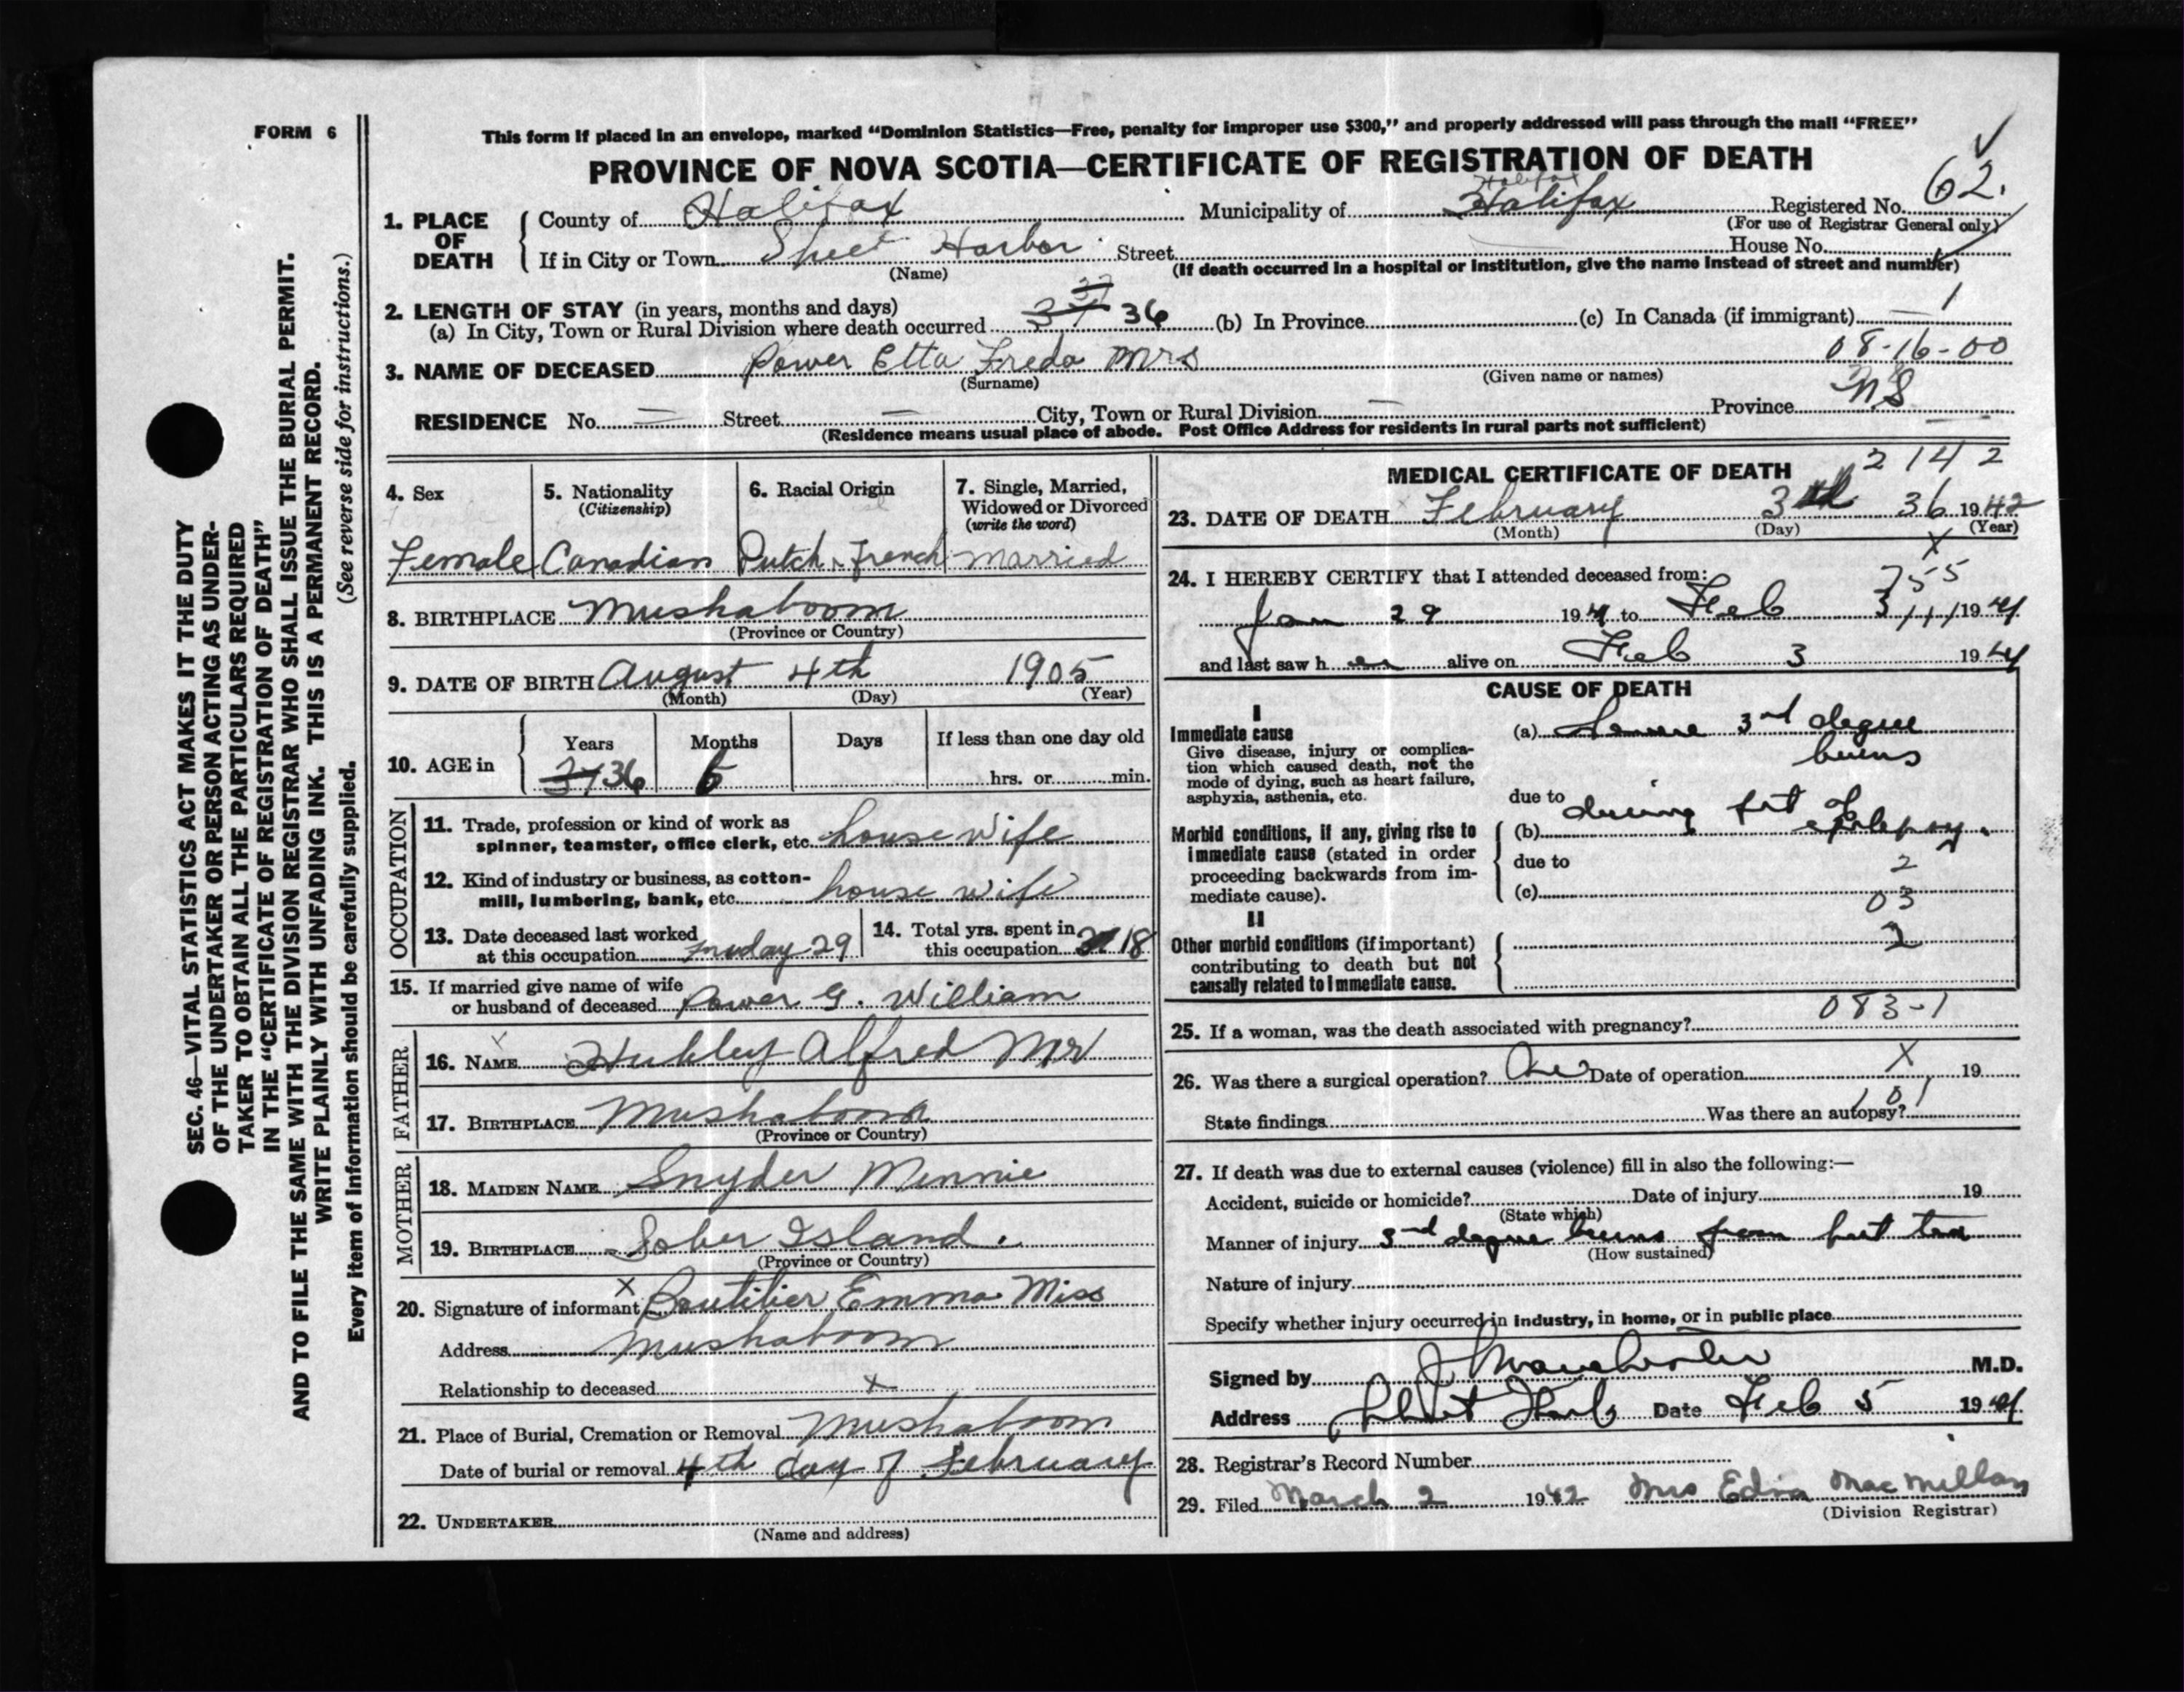 FORM 6
This form if placed in an envelope, marked "Dominion Statistics—Free, penalty for improper use $300," and properly addressed will pass through the mail "FREE"
PROVINCE OF NOVA SCOTIA—CERTIFICATE OF REGISTRATION OF DEATH
62.
1. PLACE OF DEATH
County of Halifax Municipality of Halifax Registered No.
(For use of Registrar General only)
If in City or Town Sheet Harbor Street House No.
(Name) (If death occurred in a hospital or institution, give the name instead of street and number)
2. LENGTH OF STAY (in years, months and days)
(a) In City, Town or Rural Division where death occurred 37 36 (b) In Province (c) In Canada (if immigrant) 1
08-16-00
3. NAME OF DECEASED Power Etta Freda Mrs
(Surname) (Given name or names)
RESIDENCE No. — Street — City, Town or Rural Division — Province NS
(Residence means usual place of abode. Post Office Address for residents in rural parts not sufficient)
4. Sex
Female
5. Nationality
(Citizenship)
Canadian
6. Racial Origin
Dutch & French
7. Single, Married,
Widowed or Divorced
(write the word)
married
8. BIRTHPLACE Mushaboom
(Province or Country)
9. DATE OF BIRTH August 4th 1905
(Month) (Day) (Year)
10. AGE in
Years Months Days If less than one day old
37 36 5 hrs. or min.
OCCUPATION
11. Trade, profession or kind of work as
spinner, teamster, office clerk, etc. house wife
12. Kind of industry or business, as cotton-
mill, lumbering, bank, etc. house wife
13. Date deceased last worked
at this occupation 29
14. Total yrs. spent in
this occupation 18
15. If married give name of wife
or husband of deceased Power G. William
FATHER
16. NAME Hubley Alfred Mr
17. BIRTHPLACE Mushaboom
(Province or Country)
MOTHER
18. MAIDEN NAME Snyder Minnie
19. BIRTHPLACE Sober Island.
(Province or Country)
20. Signature of informant x Boutilier Emma Miss
Address Mushaboom
Relationship to deceased x
21. Place of Burial, Cremation or Removal Mushaboom
Date of burial or removal 4th day of February
22. UNDERTAKER
(Name and address)
MEDICAL CERTIFICATE OF DEATH
2142
23. DATE OF DEATH February 3 36 1942
(Month) (Day) (Year)
24. I HEREBY CERTIFY that I attended deceased from:
Jan 29 194 to Feb 3 194
and last saw her alive on Feb 3 194
CAUSE OF DEATH
I
Immediate cause
Give disease, injury or complica-
tion which caused death, not the
mode of dying, such as heart failure,
asphyxia, asthenia, etc.
(a) Severe 3rd degree
burns
due to
Morbid conditions, if any, giving rise to
immediate cause (stated in order
proceeding backwards from im-
mediate cause).
(b) during fit Epilepsy.
due to
2
(c)
03
II
2
Other morbid conditions (if important)
contributing to death but not
causally related to immediate cause.
083-1
25. If a woman, was the death associated with pregnancy?
26. Was there a surgical operation? Date of operation 19
State findings Was there an autopsy?
27. If death was due to external causes (violence) fill in also the following:—
Accident, suicide or homicide? Date of injury 19
(State which)
Manner of injury 3rd degree burns from hot tea
(How sustained)
Nature of injury
Specify whether injury occurred in industry, in home, or in public place
Signed by M.D.
Address Sheet Harb Date Feb 5 194
28. Registrar's Record Number
29. Filed March 2 1942 Mrs Edna MacMillan
(Division Registrar)
SEC. 46—VITAL STATISTICS ACT MAKES IT THE DUTY
OF THE UNDERTAKER OR PERSON ACTING AS UNDER-
TAKER TO OBTAIN ALL THE PARTICULARS REQUIRED
IN THE "CERTIFICATE OF REGISTRATION OF DEATH"
AND TO FILE THE SAME WITH THE DIVISION REGISTRAR WHO SHALL ISSUE THE BURIAL PERMIT.
WRITE PLAINLY WITH UNFADING INK. THIS IS A PERMANENT RECORD.
Every item of information should be carefully supplied. (See reverse side for instructions.)